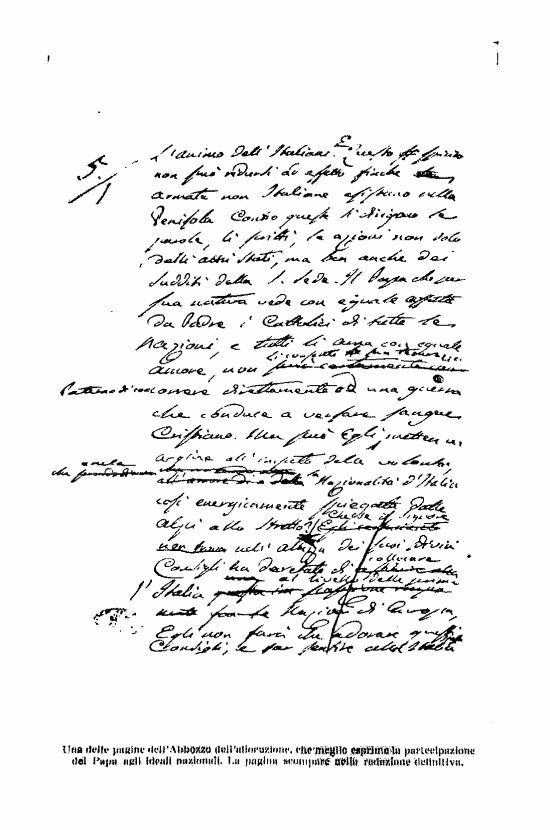 5.
L'animo dell'Italiani. E questo spirito
non può ridursi ad effetto finche
armate non Italiane esistano nella
Penisola Contro queste si dirigono le
parole, li scritti, le azioni non solo
delli altri Stati, ma ben anche dai
sudditi della S. Sede. Il Papa che per
sua natura vede con eguale affetto
da Padre i Cattolici di tutte le
Nazioni, e tutti li ama con eguale
amore, non
concorrere direttamente ad una guerra
che conduce a versare sangue
Cristiano. Ma può Egli mettere un
argine all'impeto della volontà,
che
all'amore della Nazionalità d'Italia
così energicamente spiegata dalle
Alpi allo Stretto? Che se il Signore
nell' dei suoi divini
Consigli ha decretato di sollevare
l'Italia al livello delle prime
Nazioni di Europa,
Egli non farà che adorare questi
Consigli, e
Una delle pagine dell'Abbozzo dell'allocuzione, che meglio esprime la partecipazione
del Papa agli ideali nazionali. La pagina scompare nella redazione definitiva.